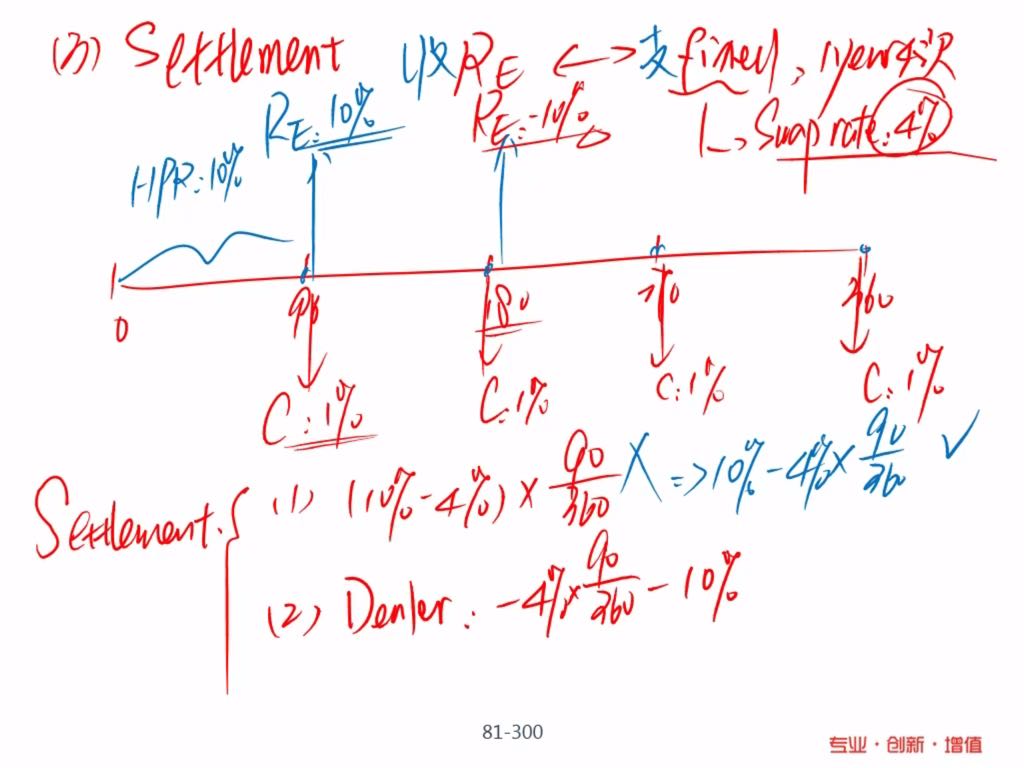 (3) Settlement 收RE ←→ 支fixed, 1year 4次
RE: 10% RE: -10% ↳ Swap rate: 4%
HPR: 10%
0 90 180 270 360
C: 1% C: 1% C: 1% C: 1%
Settlement: { (1) (10% - 4%) × 90/360 X => 10% - 4% × 90/360 ✓
(2) Dealer: -4% × 90/360 - 10%
81-300
专业·创新·增值